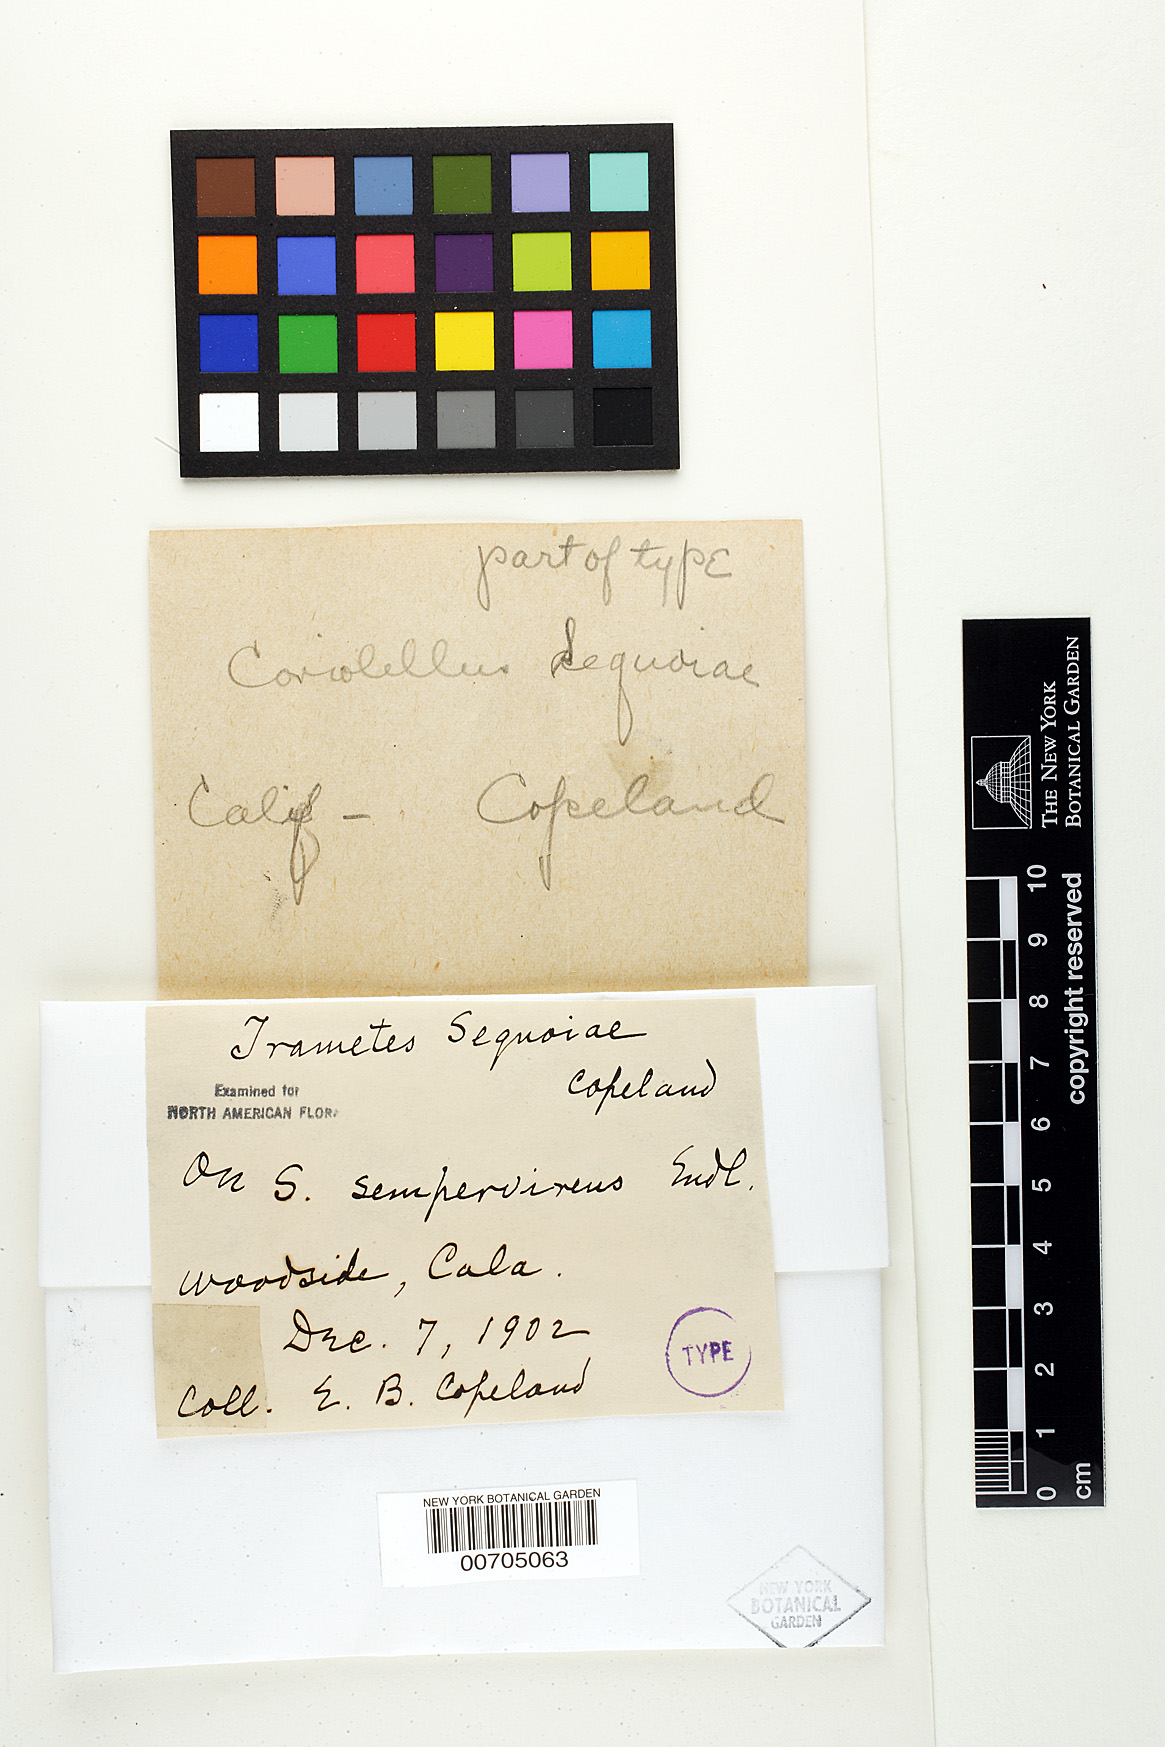 part of type
Coriolellus Sequoiae
Calif – Copeland
Trametes Sequoiae
Copeland
Examined for
NORTH AMERICAN FLORA
On S. sempervirens Endl.
Woodside, Cala.
Dec. 7, 1902
Coll. E. B. Copeland
TYPE
NEW YORK BOTANICAL GARDEN
00705063
NEW YORK
BOTANICAL
GARDEN
THE NEW YORK
BOTANICAL GARDEN
copyright reserved
10
9
8
7
6
5
4
3
2
1
0
cm